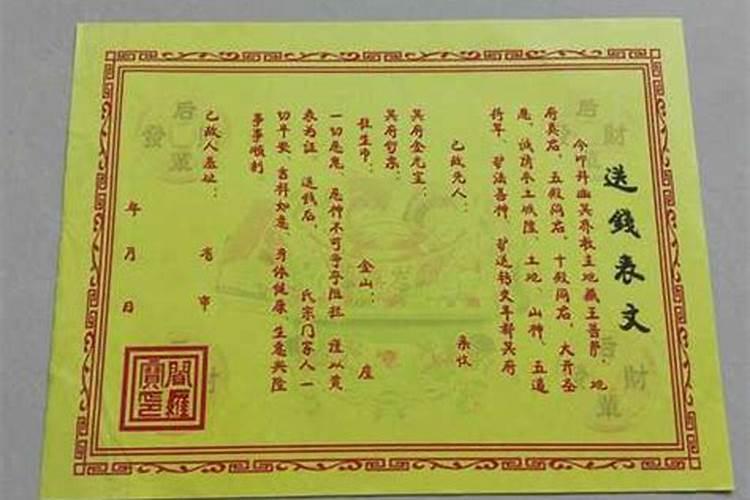 送錢表文
今叩拜幽冥界教主地藏王菩萨、地
府真君、五殿阎君、十殿阎君、大升圣
恩、诚请本土城隍、土地、山神、五道
将军、护法善神、护送钱文车辇冥府
亲收
已故先人：
冥府金元宝：
冥府哲票：
金山： 座
一切恶鬼、恶神不可半夺阻拦 谨以黄
表为证、送钱后、 氏宗门家人一
切平安、吉祥如意、身体健康 生意兴隆
事事顺利
已故人墓址： 省 市
年 月 日
閻羅寶印
后發財單
后發財單
后發財單